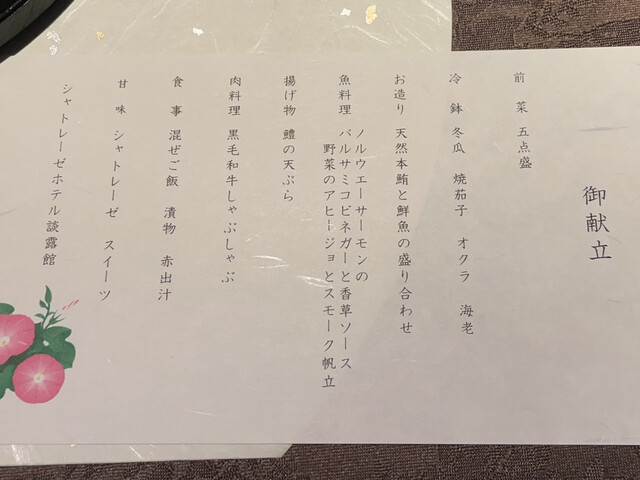 御献立
前菜 五点盛
冷鉢 冬瓜 焼茄子 オクラ 海老
お造り 天然本鮪と鮮魚の盛り合わせ
魚料理 ノルウエーサーモンの
バルサミコビネガーと香草ソース
野菜のアヒージョとスモーク帆立
揚げ物 鱧の天ぷら
肉料理 黒毛和牛しゃぶしゃぶ
食事 混ぜご飯 漬物 赤出汁
甘味 シャトレーゼ スイーツ
シャトレーゼホテル談露館